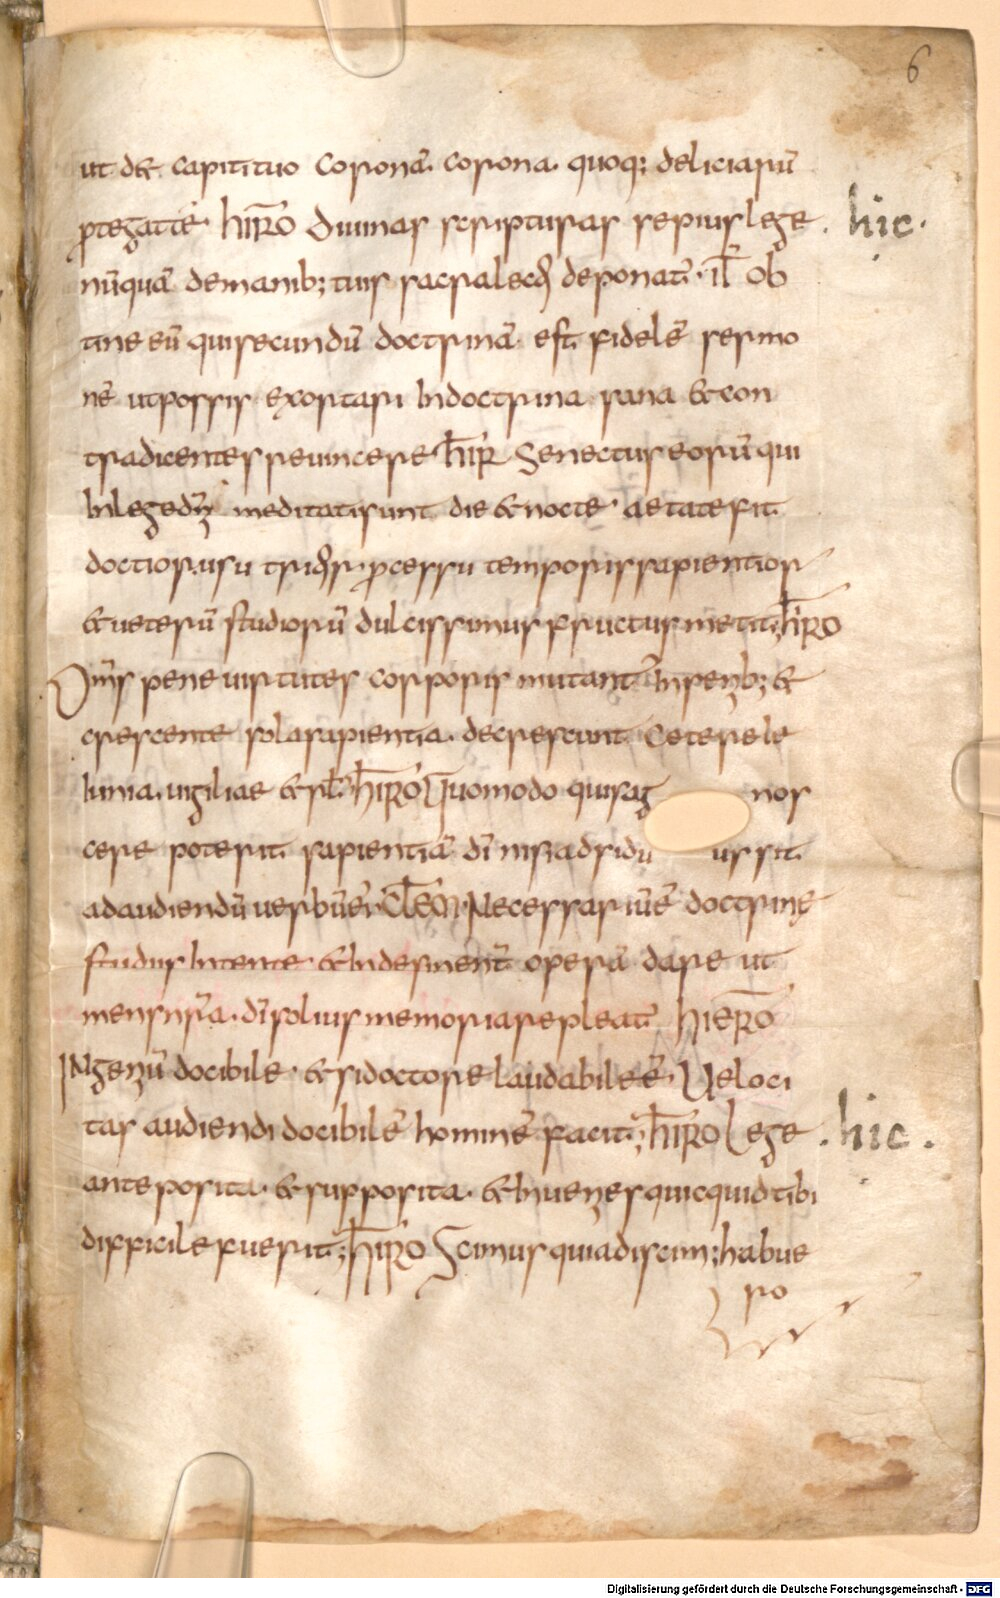 6
ut d& capiti tuo coronā. corona. quoq; deliciarū
ꝓtegat te. hiRō Diuinas scripturas sepius lege . hic.
nūquā de manib; tuis sacra lec̄ deponat̄. iT ob
tine eū qui secundū doctrinā est fidelē sermo
nē ut possis exortari In doctrina sana & con
tradicentes reuincere hiR Senectus eorū qui
In lege dn̄i meditati sunt die & nocte. aetate fit
doctior. usu processu temporis sapientior
& ueterū studiorū dulcissimus fructus metit; hiRO
Om̄s pene uirtutes corporis mutant̄ In senib; &
crescente sola sapientia. decrescunt Cetere Ie
Iunia. uigiliae & rl̄. hiRO Quomodo quis ag nos
cere poterit sapientiā dī nisi adsidu us sit
ad audiendū uerbū eī CLEM. Necessariū ē doctrinę
studiis Intente & Indesinent̄ operā dare ut
mens nr̄a. dī solius memoria repleat̄ hiERO
INgeniū docibile. & si doctore laudabile ē. Ueloci
tas audiendi docibilē hominē facit; hiRO Lege . hic.
anteposita. & supposita. & Inuenies quicquid tibi
difficile fuerit; hiRO Scimus quia discim; habue
ro
Digitalisierung gefördert durch die Deutsche Forschungsgemeinschaft - DFG